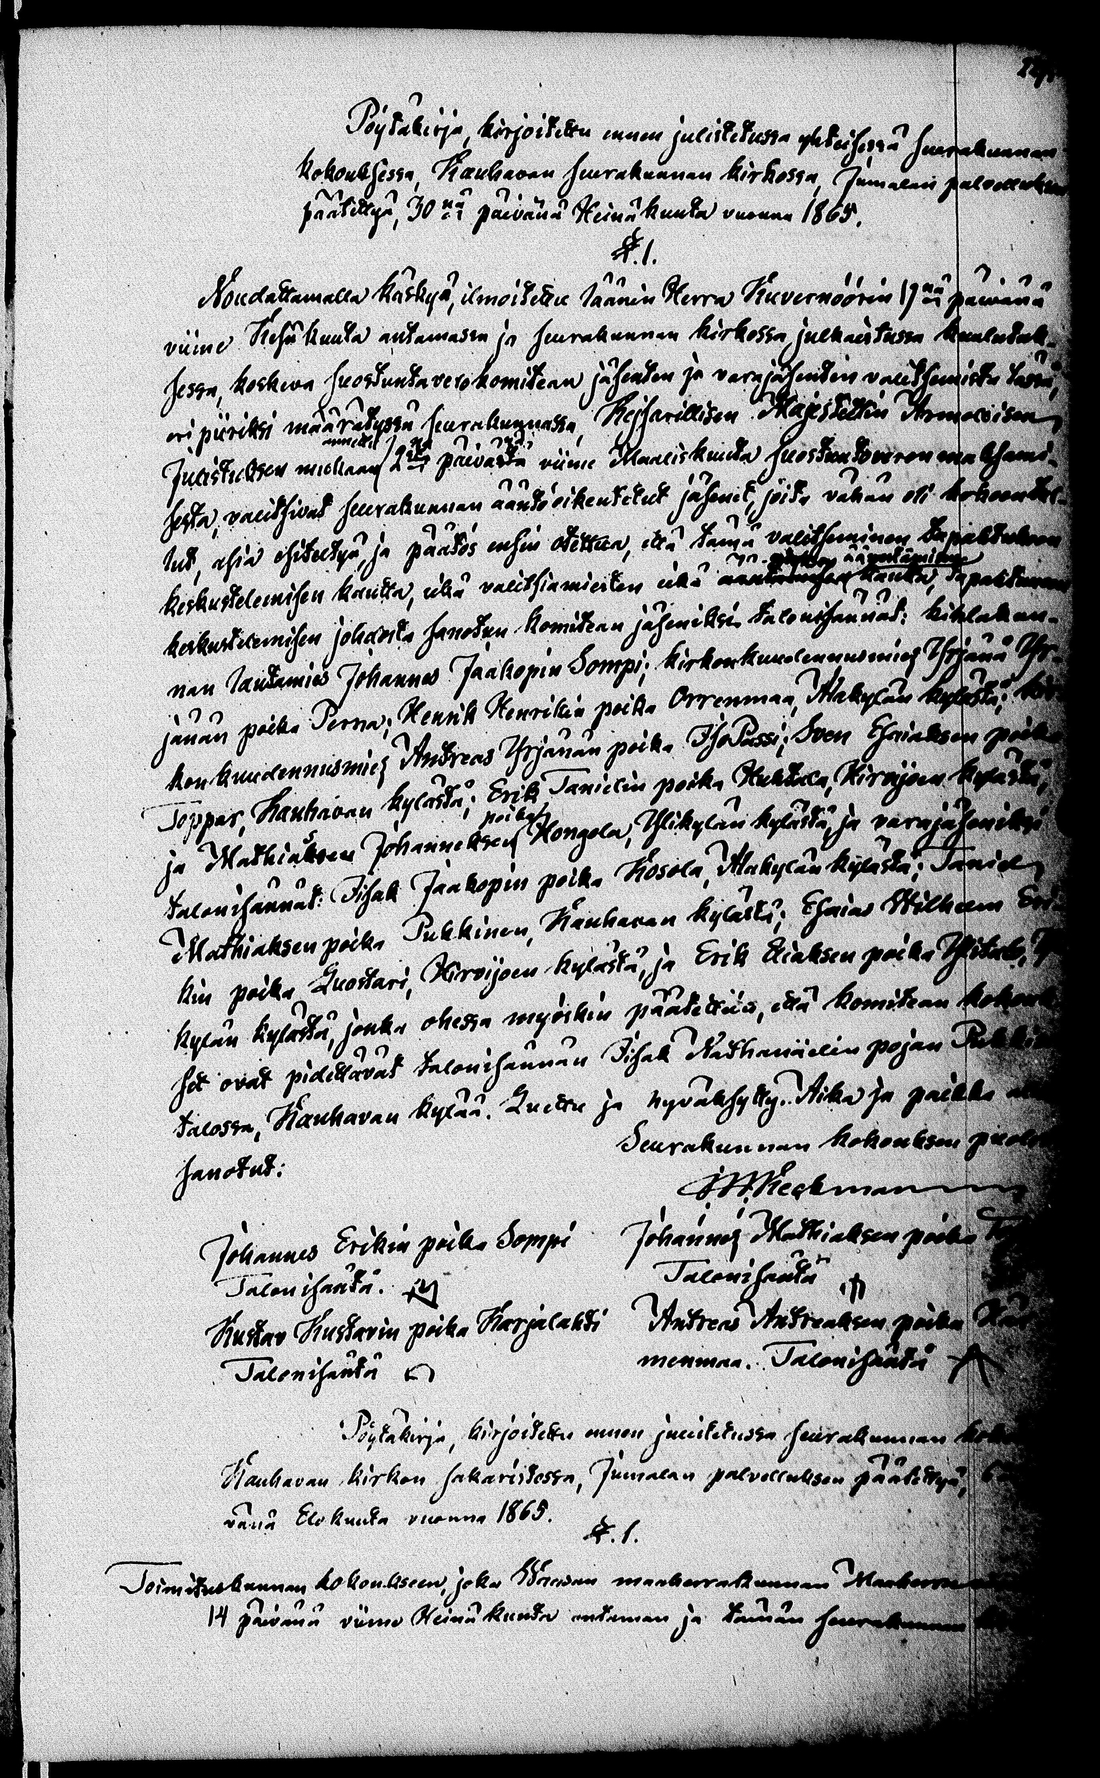 Pöytäkirja, kirjoitettu ennen julistetussa yhteisessä seurakunnan
kokouksessa, Kauhavan seurakunnan kirkossa, Jumalan palvelluksen
päätettyä, 30 nä päivänä Heinäkuuta vuonna 1865.
§. 1.
Noudattamalla käskyä, ilmoitettu läänin Herra Kuvernöörin 19 nä päivänä
viime Kesäkuuta antamassa ja seurakunnan kirkossa julkaistussa kuulutuk-
sessa, koskeva suostuntaverokomitean jäsenten ja varajäsenten valitsemista tässä,
eri piiriksi määrätyssä seurakunnassa, Keisarillisen Majesteetin Armollisen
Julistuksen mukaan annettu 2 sta päivästä viime Maaliskuuta suostuntaveron maksami-
sesta, valitsivat seurakunnan ääntöoikeutetut jäsenet, joita vähän oli kokoontul-
lut, asia esiteltyä, ja päätös ensin otettua, että tämä valitseminen tapahtukoon
keskustelemisen kautta, eikä valitsiamiesten eikä äänestämisen kautta, tapahtuneen
keskustelemisen johdosta sanotun komitean jäseniksi talonisännät: kihlakun-
nan lautamies Johannes Jaakopin Sompi; kirkonkuudennusmies Yrjänä Yr-
jänän poika Perna; Henrik Henrikin poika Orrenmaa, Alakylän kylästä; kir-
kon kuudennusmies Andreas Yrjänän poika Iso Passi; Sven Esaiaksen poika
Toppar, Kauhavan kylästä; Erik Danielin poika Huhtala, Hirvijoen kylästä;
ja Mathiaksen Johanneksen poika Kongola, Ylikylän kylästä, ja varajäseniksi
talonisännät: Isak Jaakopin poika Kosola, Alakylän kylästä; Daniel
Mathiaksen poika Pukkinen, Kauhavan kylästä; Esaias Wilhelm Eri-
kin poika Luostari, Hirvijoen kylästä, ja Erik Eliaksen poika Ylitalo, Yli-
kylän kylästä, jonka ohessa myöskin päätettiin, että komitean kokouk-
set ovat pidettävät talonisännän Isak Nathanaelin pojan Pukkisen
talossa, Kauhavan kylää. Luettu ja hyväksytty. Aika ja paikka
sanotut:
Seurakunnan kokouksen puolesta
Johannes Erikin poika Sompi
Talonisäntä.
Johannes Mathiaksen poika
Talonisäntä
Kustav Kustavin poika Karjalahti
Talonisäntä
Andreas Andreaksen poika
menmaa. Talonisäntä
Pöytäkirja, kirjoitettu ennen julistetussa seurakunnan
Kauhavan kirkon sakaristossa, Jumalan palvelluksen päätettyä, 6
vänä Elokuuta vuonna 1865.
§. 1.
Toimituskunnan kokoukseen, joka Waasan maaherrakunnan Maaherra
14 päivänä viime Heinäkuuta antaman ja tämän seurakunnan